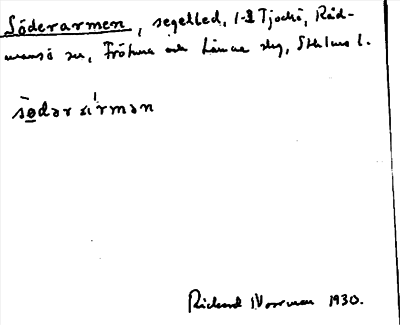 Söderarmen, segelled, 1-2 Tjockö, Råd-
mansö sn, Frötuna och Länna slg, Sthlms l.
sødər ármən
Rickard 1930.